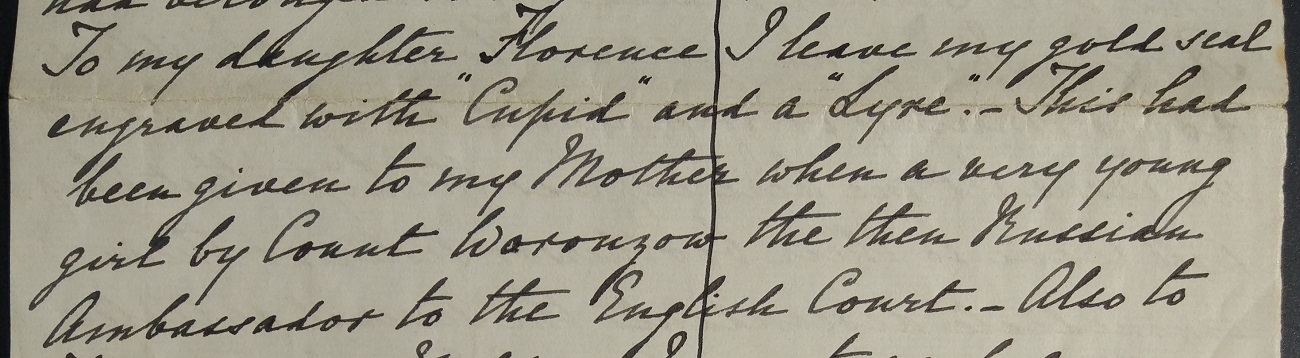 To my daughter Florence I leave my gold seal
engraved with "Cupid" and a "Lyre".- This had
been given to my Mother when a very young
girl by Count Woronzow the then Russian
Ambassador to the English Court.- Also to